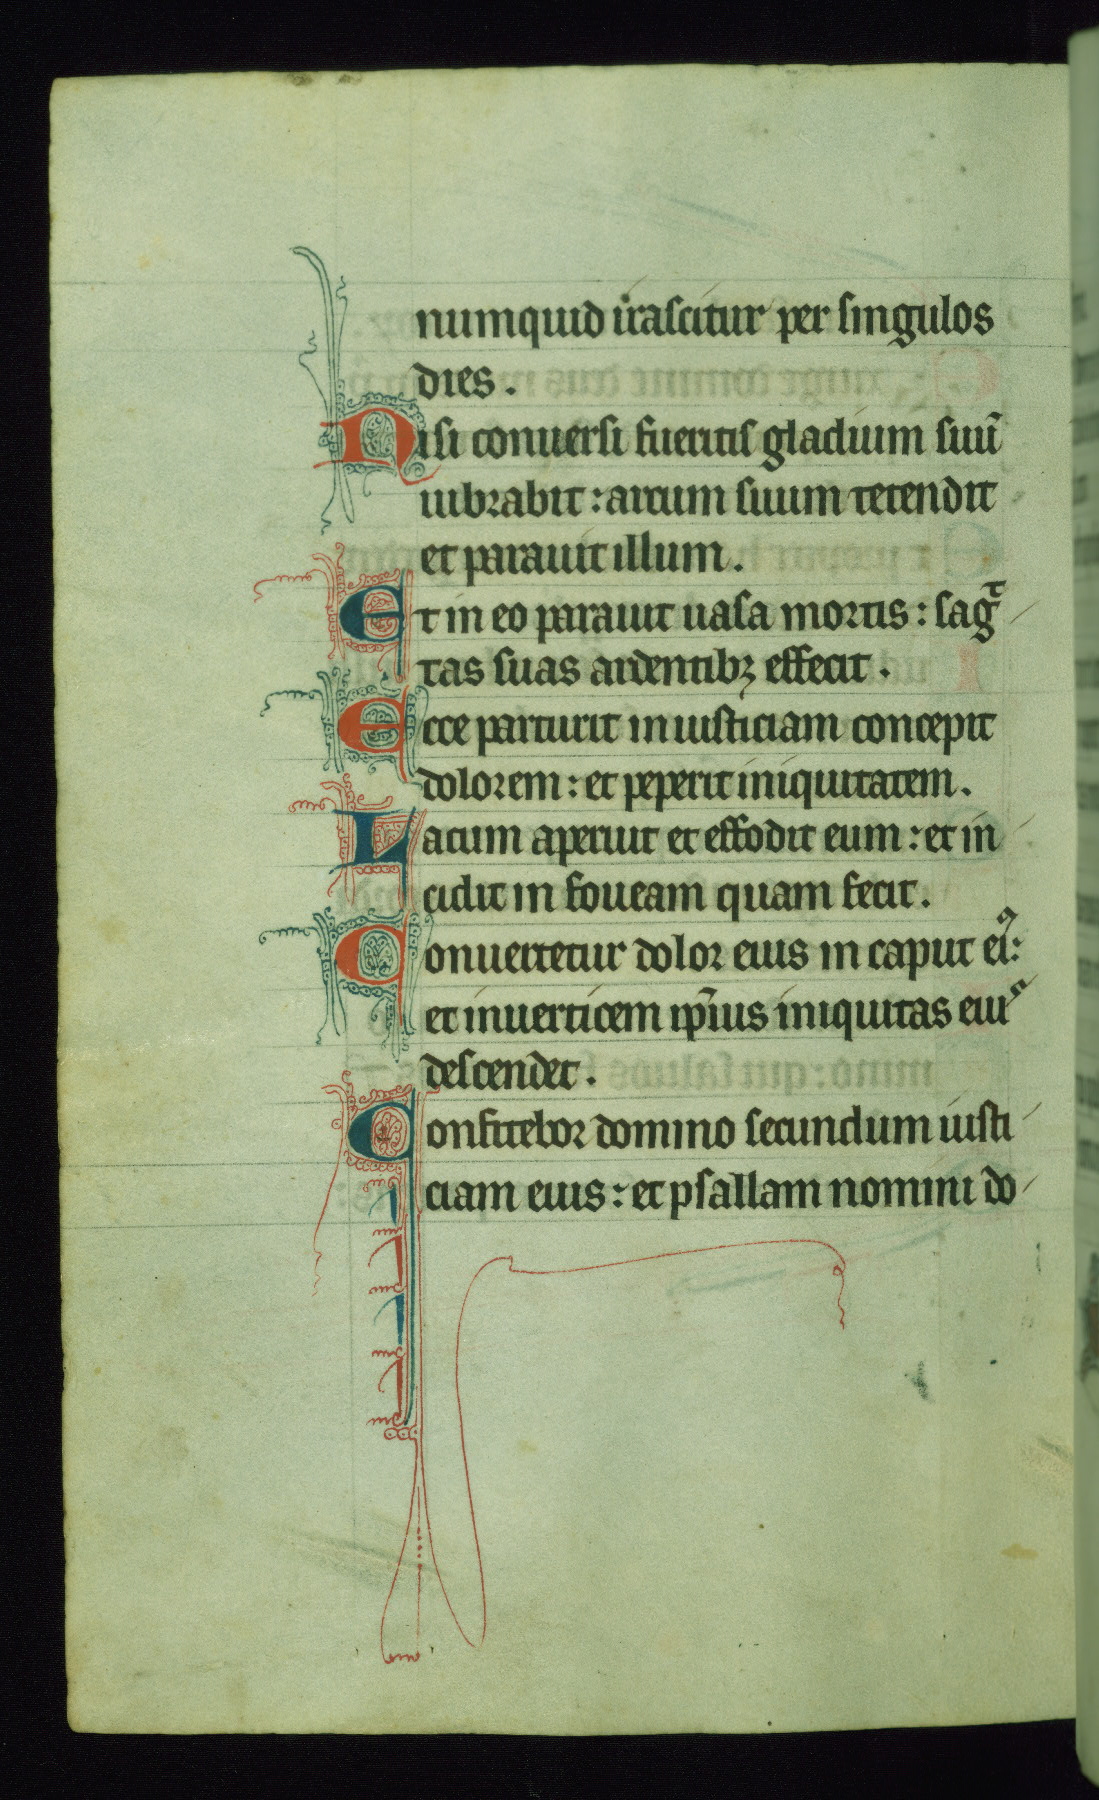 numquid irascitur per singulos
dies.
Nisi conuersi fueritis gladium suū
uibrabit: arcum suum tetendit
et parauit illum.
Et in eo parauit uasa mortis: sagᷓ
tas suas ardentibꝫ effecit.
Ecce parturit iniusticiam concepit
dolorem: et peperit iniquitatem.
Lacum aperuit et effodit eum: et in
cidit in foueam quam fecit.
Conuertetur dolor eius in caput eiꝰ:
et inuerticem ip̄ius iniquitas eius
descendet.
Confitebor domino secundum iusti
ciam eius: et psallam nomini do